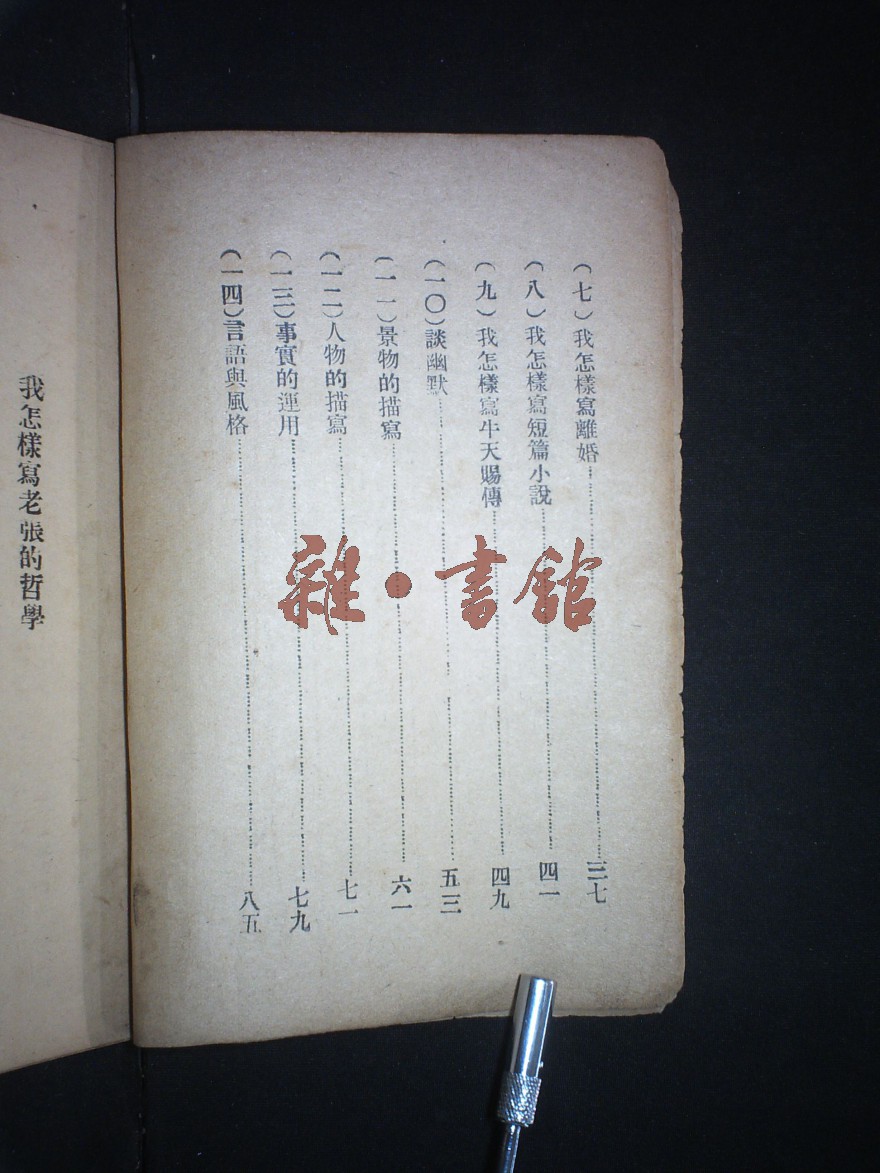 (七)我怎樣寫離婚……三七
(八)我怎樣寫短篇小說……四一
(九)我怎樣寫牛天賜傳……四九
(一〇)談幽默……五三
(一一)景物的描寫……六一
(一二)人物的描寫……七一
(一三)事實的運用……七九
(一四)言語與風格……八五
我怎樣寫老張的哲學
雜·書館